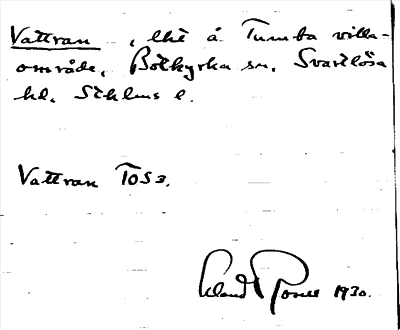 Vattran , lht å Tumba villa-
område, Botkyrka sn, Svartlösa
hd, Sthlms l.
Vattran TOS3.
Roner 1930.